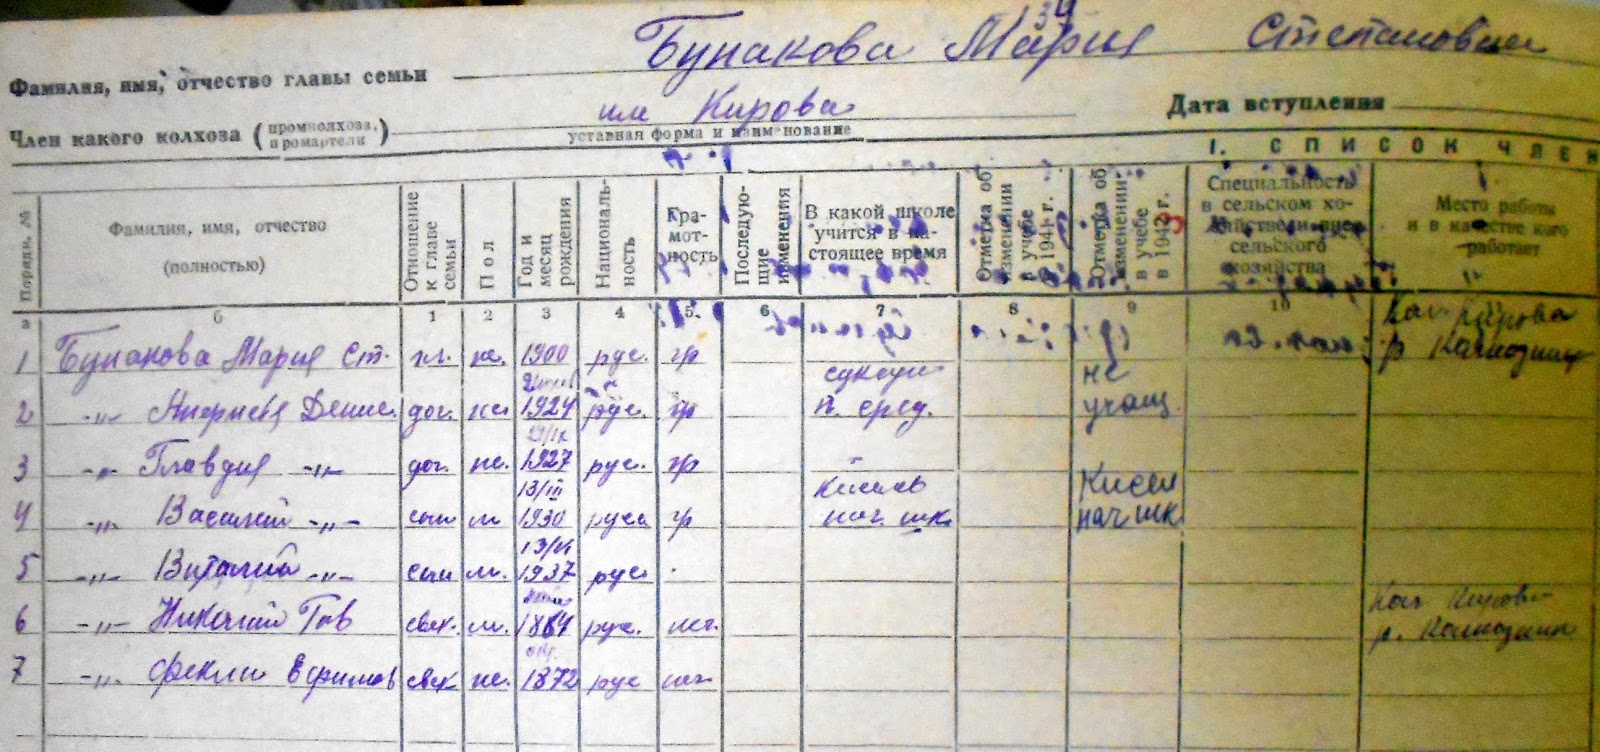 34
Бунакова Мария Степановна
Фамилия, имя, отчество главы семьи
им Кирова
Дата вступления
Член какого колхоза (промколхоза, промартели)
уставная форма и наименование
I. СПИСОК ЧЛЕН
Порядк. №
Фамилия, имя, отчество (полностью)
Отношение к главе семьи
Пол
Год и месяц рождения
Националь-ность
Гра-мот-ность
Последую-щие изменения
В какой школе учится в на-стоящее время
Отметка об изменении в учебе в 1941 г.
Отметка об изменении в учебе в 1943 г.
Специальность в сельском хо-зяйстве и вне сельского хозяйства
Место работы и в качестве кого работает
а б 1 2 3 4 5. 6 7 8 9 10 11
1 Бунакова Мария Ст. гл. же. 1900 рус. гр Кол. Кирова р. Колхозник
2 -"- Денис. доч. же 1924 рус. гр п. сред. не учащ.
29/IX
3 -"- Клавдия -"- доч. же. 1927 рус. гр
13/III
4 -"- Василий -"- сын м 1930 русс гр нач. шк. Кисел нач шк
13/VI
5 -"- Виталий -"- сын м. 1937 рус
6 -"- Николай Пав свек. м. 1864 рус. нег. Кол. Кирова р. Колхозник
7 -"- Фекла Ефимов свек же. 1872 рус нег